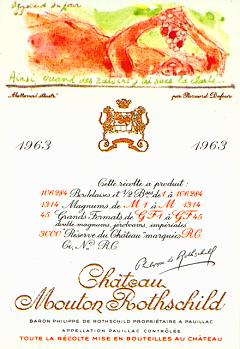 Bernard Dufour
Ainsi, quand des raisins j'ai sucé la clarté...
par Bernard Dufour
1963 1963
Cette récolte a produit :
106284 Bordelaises et 1/2 Btes de 1 à 106284
1314 Magnums de M 1 à M 1314
45 Grands Formats de G F 1 à G F 45
double magnums, jeroboams, impériales
3000 "Réserve du Château" marquées R.C.
Ci, No R.C.
Philippe de Rothschild
Château
Mouton Rothschild
BARON PHILIPPE DE ROTHSCHILD PROPRIÉTAIRE A PAUILLAC
APPELLATION PAUILLAC CONTRÔLÉE
TOUTE LA RÉCOLTE MISE EN BOUTEILLES AU CHÂTEAU